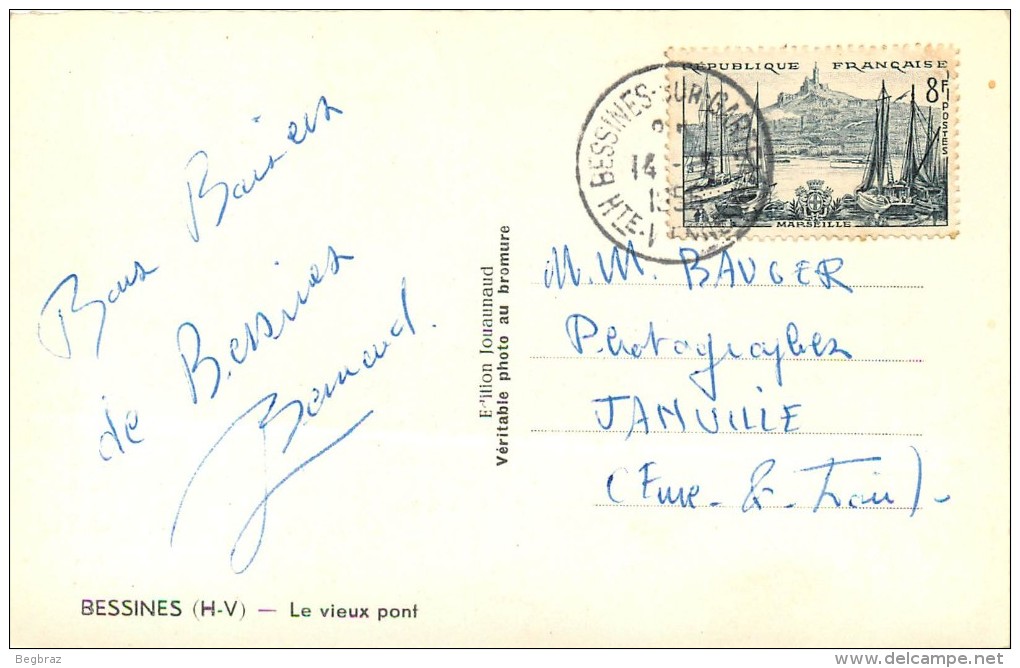 Bons Baisers
de Bessines
Bernard.
BESSINES (H-V) — Le vieux pont
Edition Jouaunaud
Véritable photo au bromure
BESSINES-SUR-GART
14
HTE-VIENNE
RÉPUBLIQUE FRANÇAISE
8F
POSTES
MARSEILLE
M.M. BAUGER
Photographes
JANVILLE
(Eure-&-Loir)-
Begbraz
www.delcampe.net